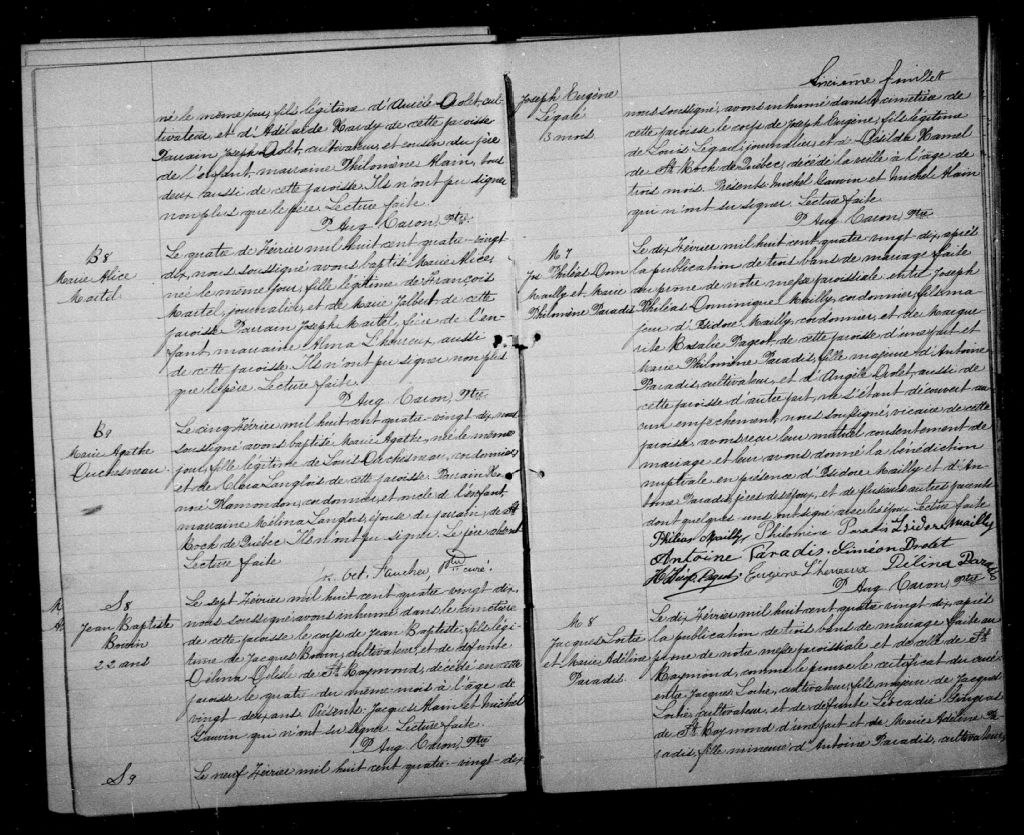 né le même jour, fils légitime d'Aurèle Drolet, cul-
tivateur, et d'Adélaïde Hardy de cette paroisse
Parrain Joseph Drolet, cultivateur et cousin du père
de l'enfant, marraine Philomène Alain, tous
deux aussi de cette paroisse. Ils n'ont pu signer
non plus que le père. Lecture faite.
P Aug Caron, Ptre
B8
Marie Alice
Martel
Le quatre d'Février mil huit cent quatre-vingt
dix, nous soussigné avons baptisé Marie Alice,
née le même jour, fille légitime de François
Martel, journalier, et de Marie Jalbert de cette
paroisse. Parrain Joseph Martel, frère de l'en-
fant, marraine Alma L'heureux aussi
de cette paroisse. Ils n'ont pu signer non plus
que le père. Lecture faite.
P Aug Caron, Ptre
B9
Marie Agathe
Duchesneau
Le cinq Février mil huit cent quatre-vingt dix, nous
soussigné avons baptisé Marie Agathe, née le même
jour, fille légitime de Louis Duchesneau, cordonnier,
et de Clara Langlois de cette paroisse. Parrain Ho-
noré Plamondon, cordonnier, et oncle de l'enfant,
marraine Mélina Langlois, épouse du parrain, de St
Roch de Québec. Ils n'ont pu signer. Le père absent
Lecture faite
Oct. Faucher, Ptre curé.
S8
Jean Baptiste
Bouin
22 ans
Le sept Février mil huit cent quatre vingt dix,
nous soussigné avons inhumé dans le cimetière
de cette paroisse le corps de Jean Baptiste, fils légi-
time de Jacques Bouin, cultivateur, et de défunte
Délina Délisle de St Raymond, décédé en cette
paroisse le quatre du même mois à l'âge de
vingt deux ans. Présents: Jacques Ham et Michel
Gauvin qui n'ont su signer. Lecture faite.
P Aug Caron, Ptre
S9
Le neuf Février mil huit cent quatre-vingt dix
Joseph Eugène
Légaré
13 mois
nous soussigné, avons inhumé dans le cimetière de
cette paroisse le corps de Joseph Eugène, fils légitime
de Louis Légaré, journalier, et d'Osilda Hamel
de St Roch de Québec, décédé la veille à l'âge de
trois mois. Présents: Michel Gauvin et Michel Alain
qui n'ont su signer. Lecture faite.
P Aug Caron, Ptre
M 7
Jos Philéas Dom
Mailly et Marie
Philomène Paradis
Le dix Février mil huit cent quatre vingt dix, après
la publication de trois bans de mariage faite
au prône de notre messe paroissiale entre Joseph
Philéas Dominique Mailly, cordonnier, fils ma-
jeur d'Isidore Mailly, cordonnier, et de Margue-
rite Rosalie Pageot de cette paroisse d'une part et
Marie Philomène Paradis, fille majeure d'Antoine
Paradis, cultivateur, et d'Angèle Drolet aussi de
cette paroisse d'autre part, ne s'étant découvert au-
cun empêchement, nous soussigné, vicaire de cette
paroisse, avons reçu leur mutuel consentement de
mariage et leur avons donné la bénédiction
nuptiale en présence d'Isidore Mailly et d'An-
toine Paradis, pères des époux, et de plusieurs autres parents
dont quelques uns ont signé avec les époux. Lecture faite
Philéas Mailly Philomène Paradis Isidore Mailly
Antoine Paradis. Siméon Drolet
Eugène L'heureux Délina Paradis
P Aug Caron, Ptre
M 8
Jacques Lortie
et Marie Adéline
Paradis.
Le dix Février mil huit cent quatre vingt dix, après
la publication de trois bans de mariage faite au
prône de notre messe paroissiale et de celle de St
Raymond, comme le prouve le certificat du curé
entre Jacques Lortie, cultivateur, fils majeur de Jacques
Lortie, cultivateur, et de défunte Léocadie Gingras
de St Raymond d'une part et de Marie Adéline Pa-
radis, fille mineure d'Antoine Paradis, cultivateur,